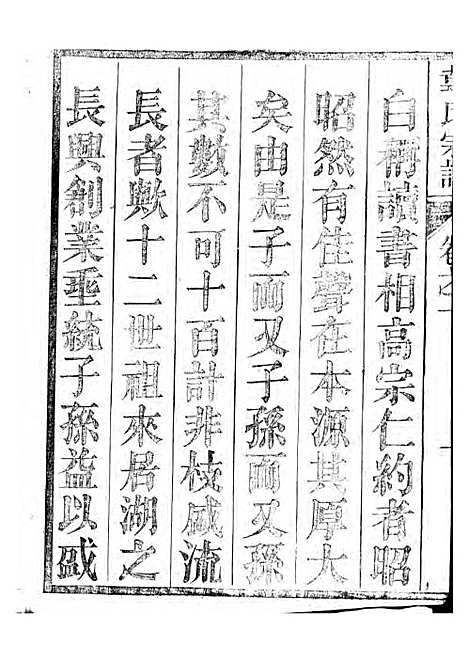 氏宗譜 卷之一
白衲讀書相高宗仁約者昭
昭然有佳聲在本源其厚大
矣由是子而又子孫而又孫
其數不可十百計非枝盛流
長者歟十二世祖來居湖之
長興創業垂統子孫益以盛